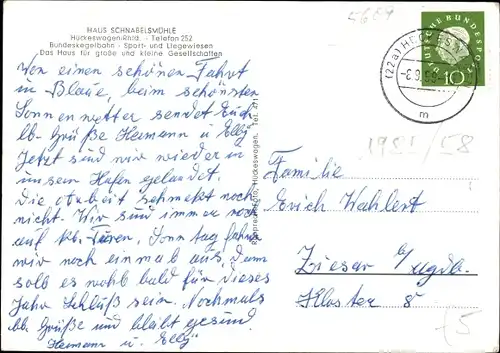 HAUS SCHNABELSMÜHLE
Hückeswagen-Rhld. - Telefon 252
Bundeskegelbahn - Sport- und Liegewiesen
Das Haus für große und kleine Gesellschaften
Von einen schönen Fahrt
in Blaue, beim schönsten
Sonnenwetter sendet Euch
lb. Grüße Hermann u. Elly
Jetzt sind wir wieder in
unsem Hafen gelandet.
die Arbeit schmekt noch
nicht. Wir sind immer noch
auf kb. Turen. Sonntag fahren
wir noch einmal aus, dann
soll es wohl bald für dieses
Jahr Schluß sein. Nochmals
lb. Grüße und bleibt gesund.
Hermann u. Elly
Hückeswagen. Tel. 471
5689
DEUTSCHE BUNDESPOST
10
(22a)
m
1981/58
Familie
Erich Wahlert
Ziesar b/ Mgdb.
Kloster 8